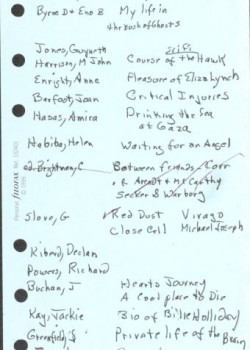 Byrne D + Eno B My life in
the bush of Ghosts
Jones, Gwyneth Scifi
Harrison, M John Course of the Hawk
Enright, Anne Pleasure of Eliza Lynch
Barfoot, Joan Critical Injuries
Hasas, Amira Drinking the Sea
at Gaza
Habiba, Helen Waiting for an Angel
Brightman, C Between friends/Corr
of Arendt & McCarthy
Secker & Warburg
Slovo, G Red Dust Virago
Close Cell Michael Joseph
Kiberd, Declan
Powers, Richard
Buchan, J Hearts Journey
A Cool place to Die
Kay, Jackie Bio of Billie Holliday
Greenfield, S Private life of the Brain
Personal filofax